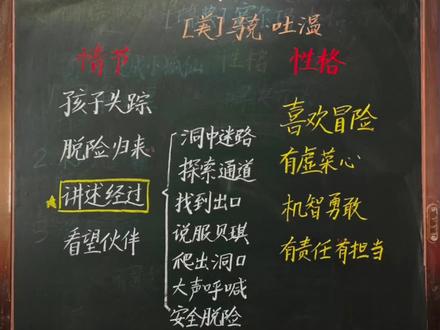 [美]马克·吐温
情节
性格
孩子失踪
脱险归来
讲述经过
看望伙伴
洞中迷路
探索通道
找到出口
说服贝琪
爬出洞口
大声呼喊
安全脱险
喜欢冒险
有虚荣心
机智勇敢
有责任有担当